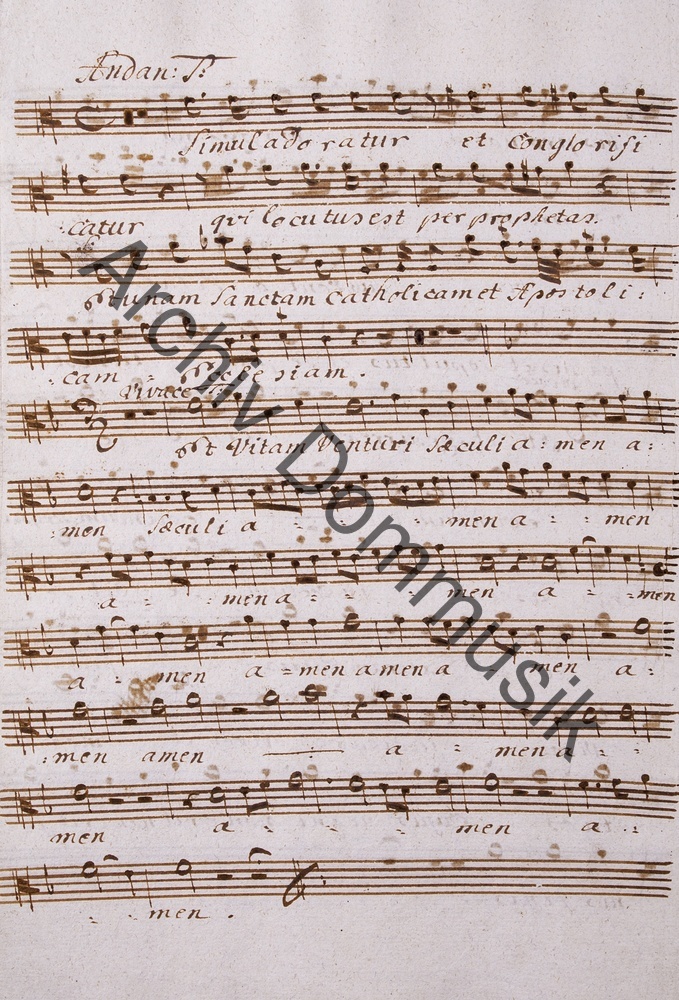 Andan: T:
Simul adoratur et Conglorifi
:catur qui locutus est per prophetas.
Et unam Sanctam Catholicam et Aposto li:
:cam Ecclesiam.
Vivace T:
Et Vitam Venturi Sæculi a: men a:
:men Sæculi a - - - men a - - men
a - : men a - - - men a - :men
a - men a - men amen a - men a:
:men amen a - men a -
men a - - - men a -:
- - men.
Archiv Dommusik